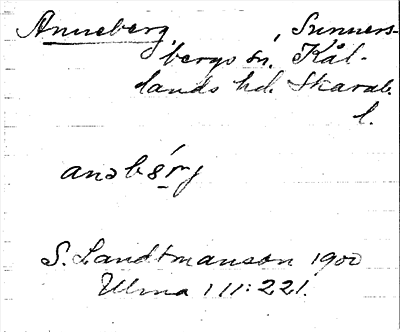 Anneberg, Sunners-
bergs sn. Kål-
lands hd. Skarab.
l.
anəbærj
S. Landtmanson 1900
Ulma 111:221.